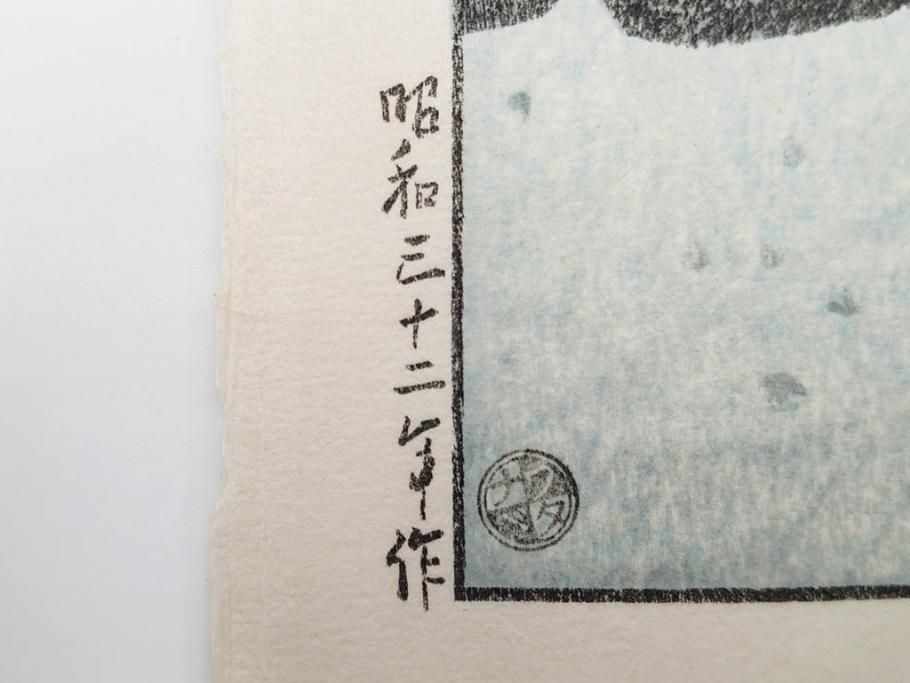 昭和三十二年作